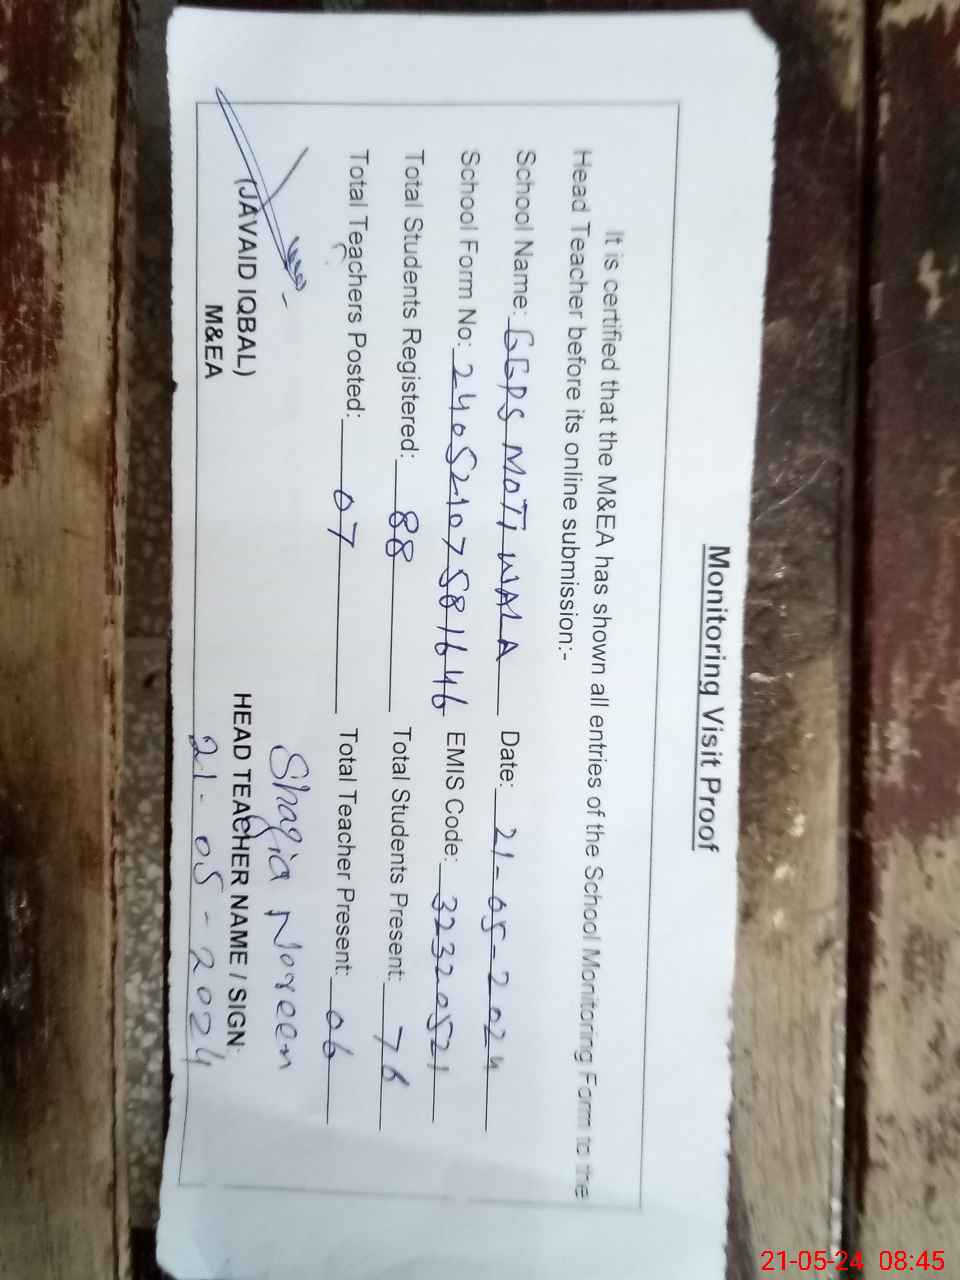 Monitoring Visit Proof
It is certified that the M&EA has shown all entries of the School Monitoring Form to the
Head Teacher before its online submission:-
School Name: GGPS MOTI WALA Date: 21-05-2024
School Form No: 24052107581646 EMIS Code: 32320521
Total Students Registered: 88 Total Students Present: 76
Total Teachers Posted: 07 Total Teacher Present: 06
Shazia Noreen
(JAVAID IQBAL) HEAD TEACHER NAME / SIGN:
M&EA 21-05-2024
21-05-24 08:45